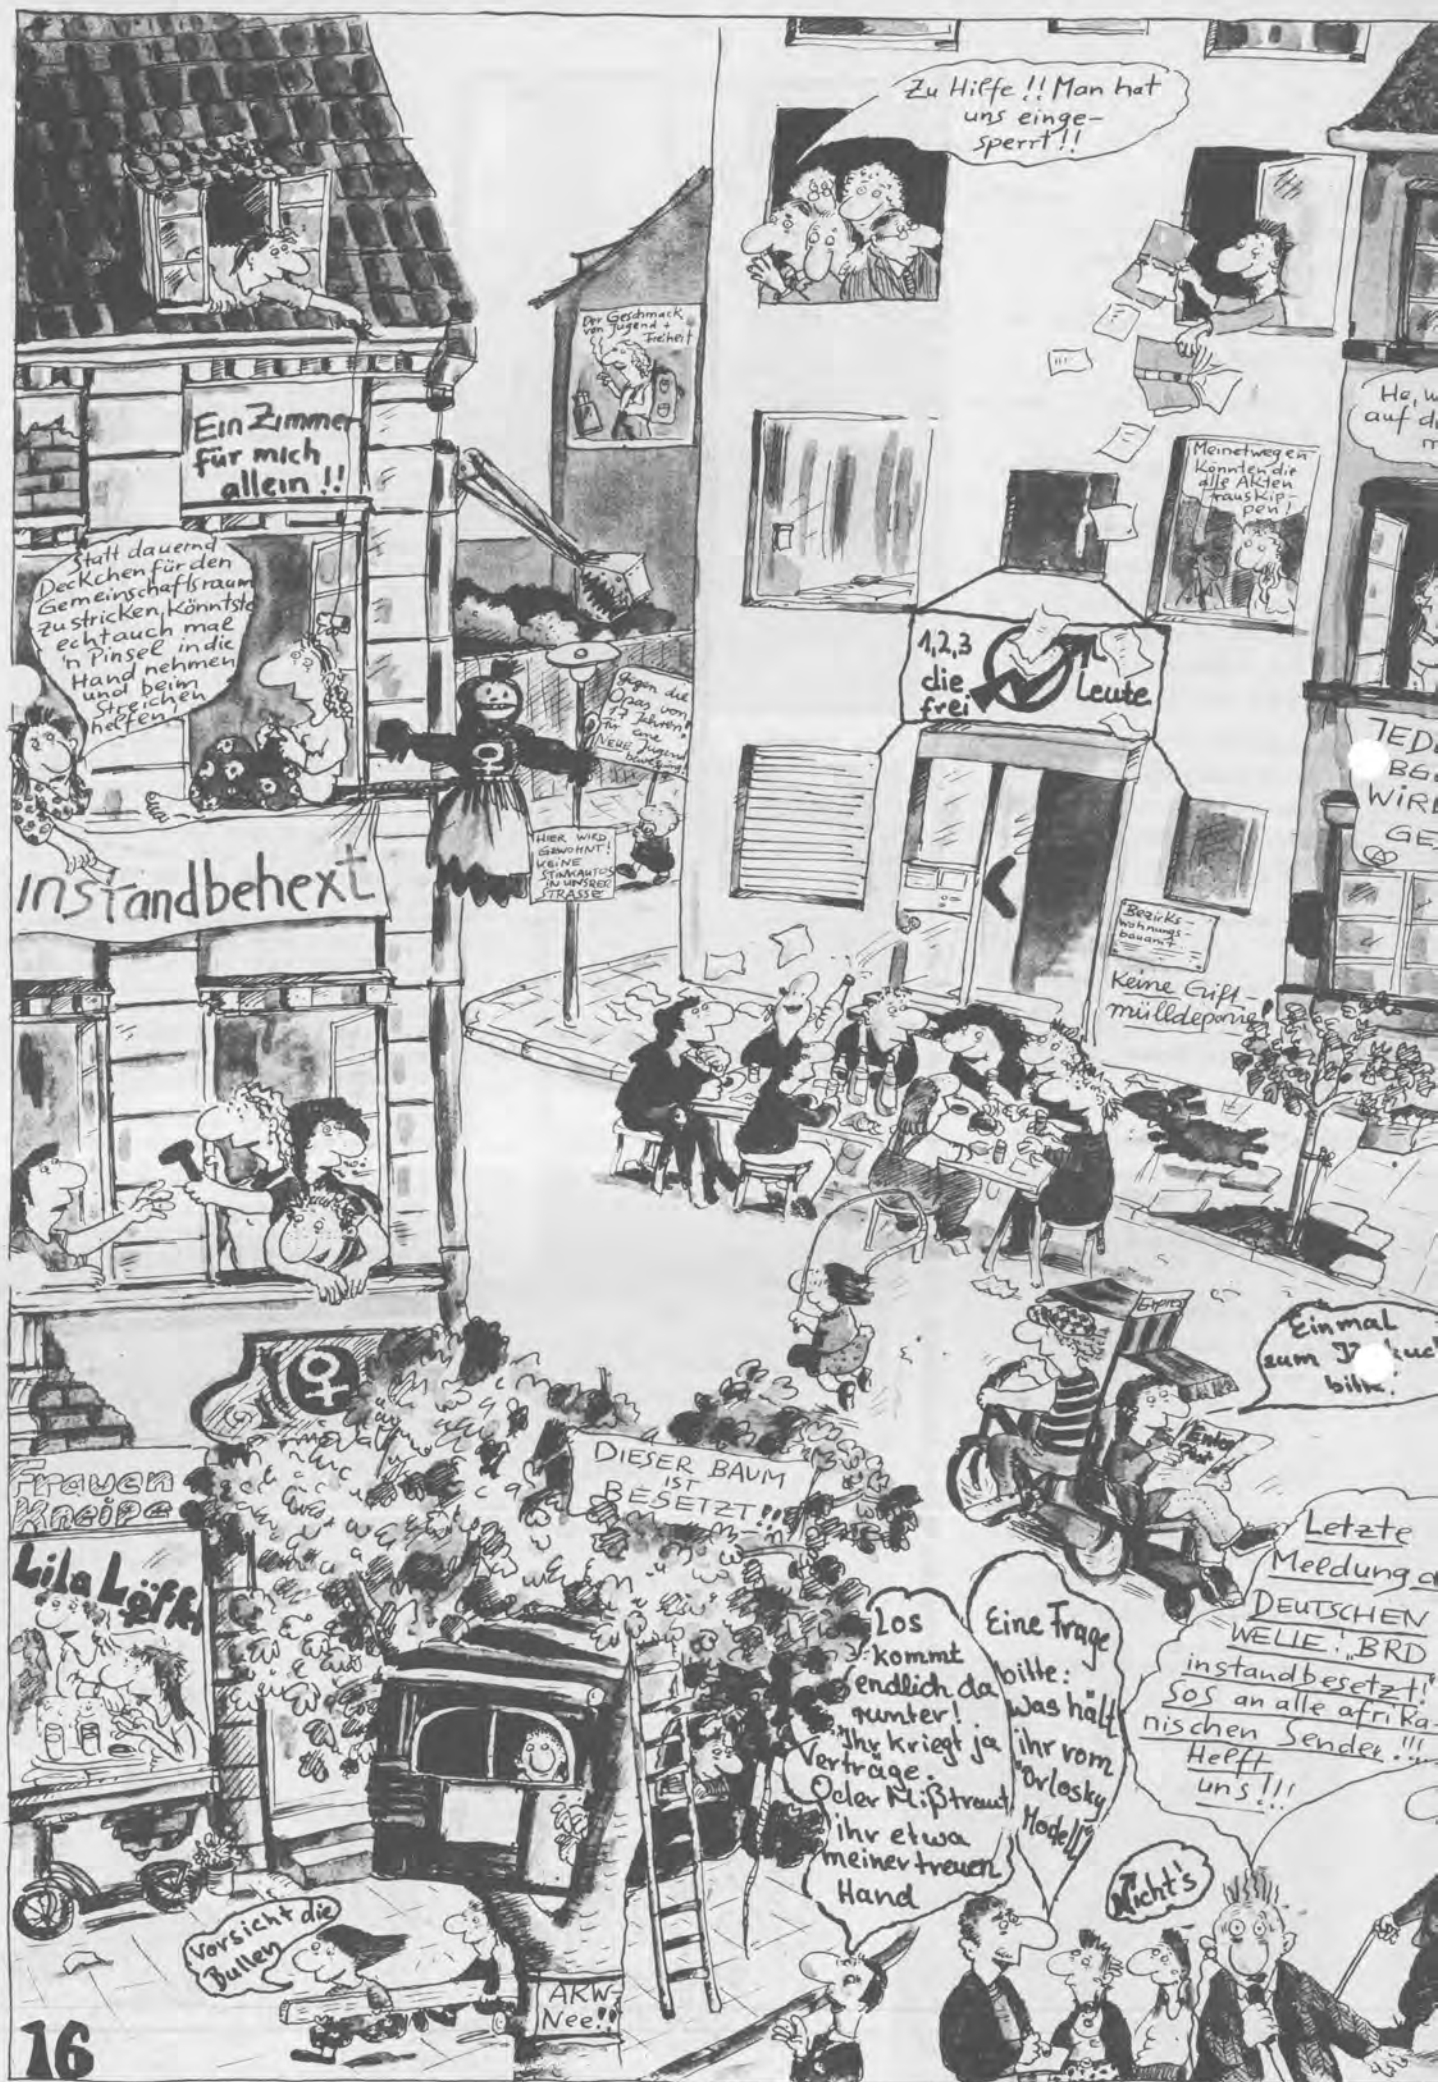 Zu Hilfe!! Man hat
uns einge-
sperrt!!
Der Geschmack
von Jugend +
Freiheit
Ein Zimmer
für mich
allein!!
He,
auf
Meinetwegen
könnten die
alle Akten
rauskip-
pen!
Statt dauernd
Deckchen für den
Gemeinschaftsraum
zu stricken, könntste
echt auch mal
'n Pinsel in die
Hand nehmen
und beim
Streichen
helfen,
1,2,3
die Leute
frei
Gegen die
Opas von
17 Jahren!
Für eine
NEUE Jugend
bewegung!
HIER WIRD
GEWOHNT!
KEINE
STINKAUTOS
IN UNSRER
STRASSE
instandbehext
Bezirks-
wohnungs-
bauamt
Keine Gift-
mülldeponie!
Einmal
zum
bitte!
Express
Frauen
Kneipe
Lila Löffel
DIESER BAUM
IST
BESETZT!!
Letzte
Meldung
DEUTSCHEN
WELLE: "BRD
instandbesetzt!"
SOS an alle afrika-
nischen Sender!!!
Helft
uns!!!
Los
kommt
endlich da
runter!
Ihr kriegt ja
Verträge.
Oder Mißtraut
ihr etwa
meiner treuen
Hand
Eine Frage
bitte:
was hält
ihr vom
"Orlosky
Modell"
Nicht's
Vorsicht die
Bullen
AKW-
Nee!!
16